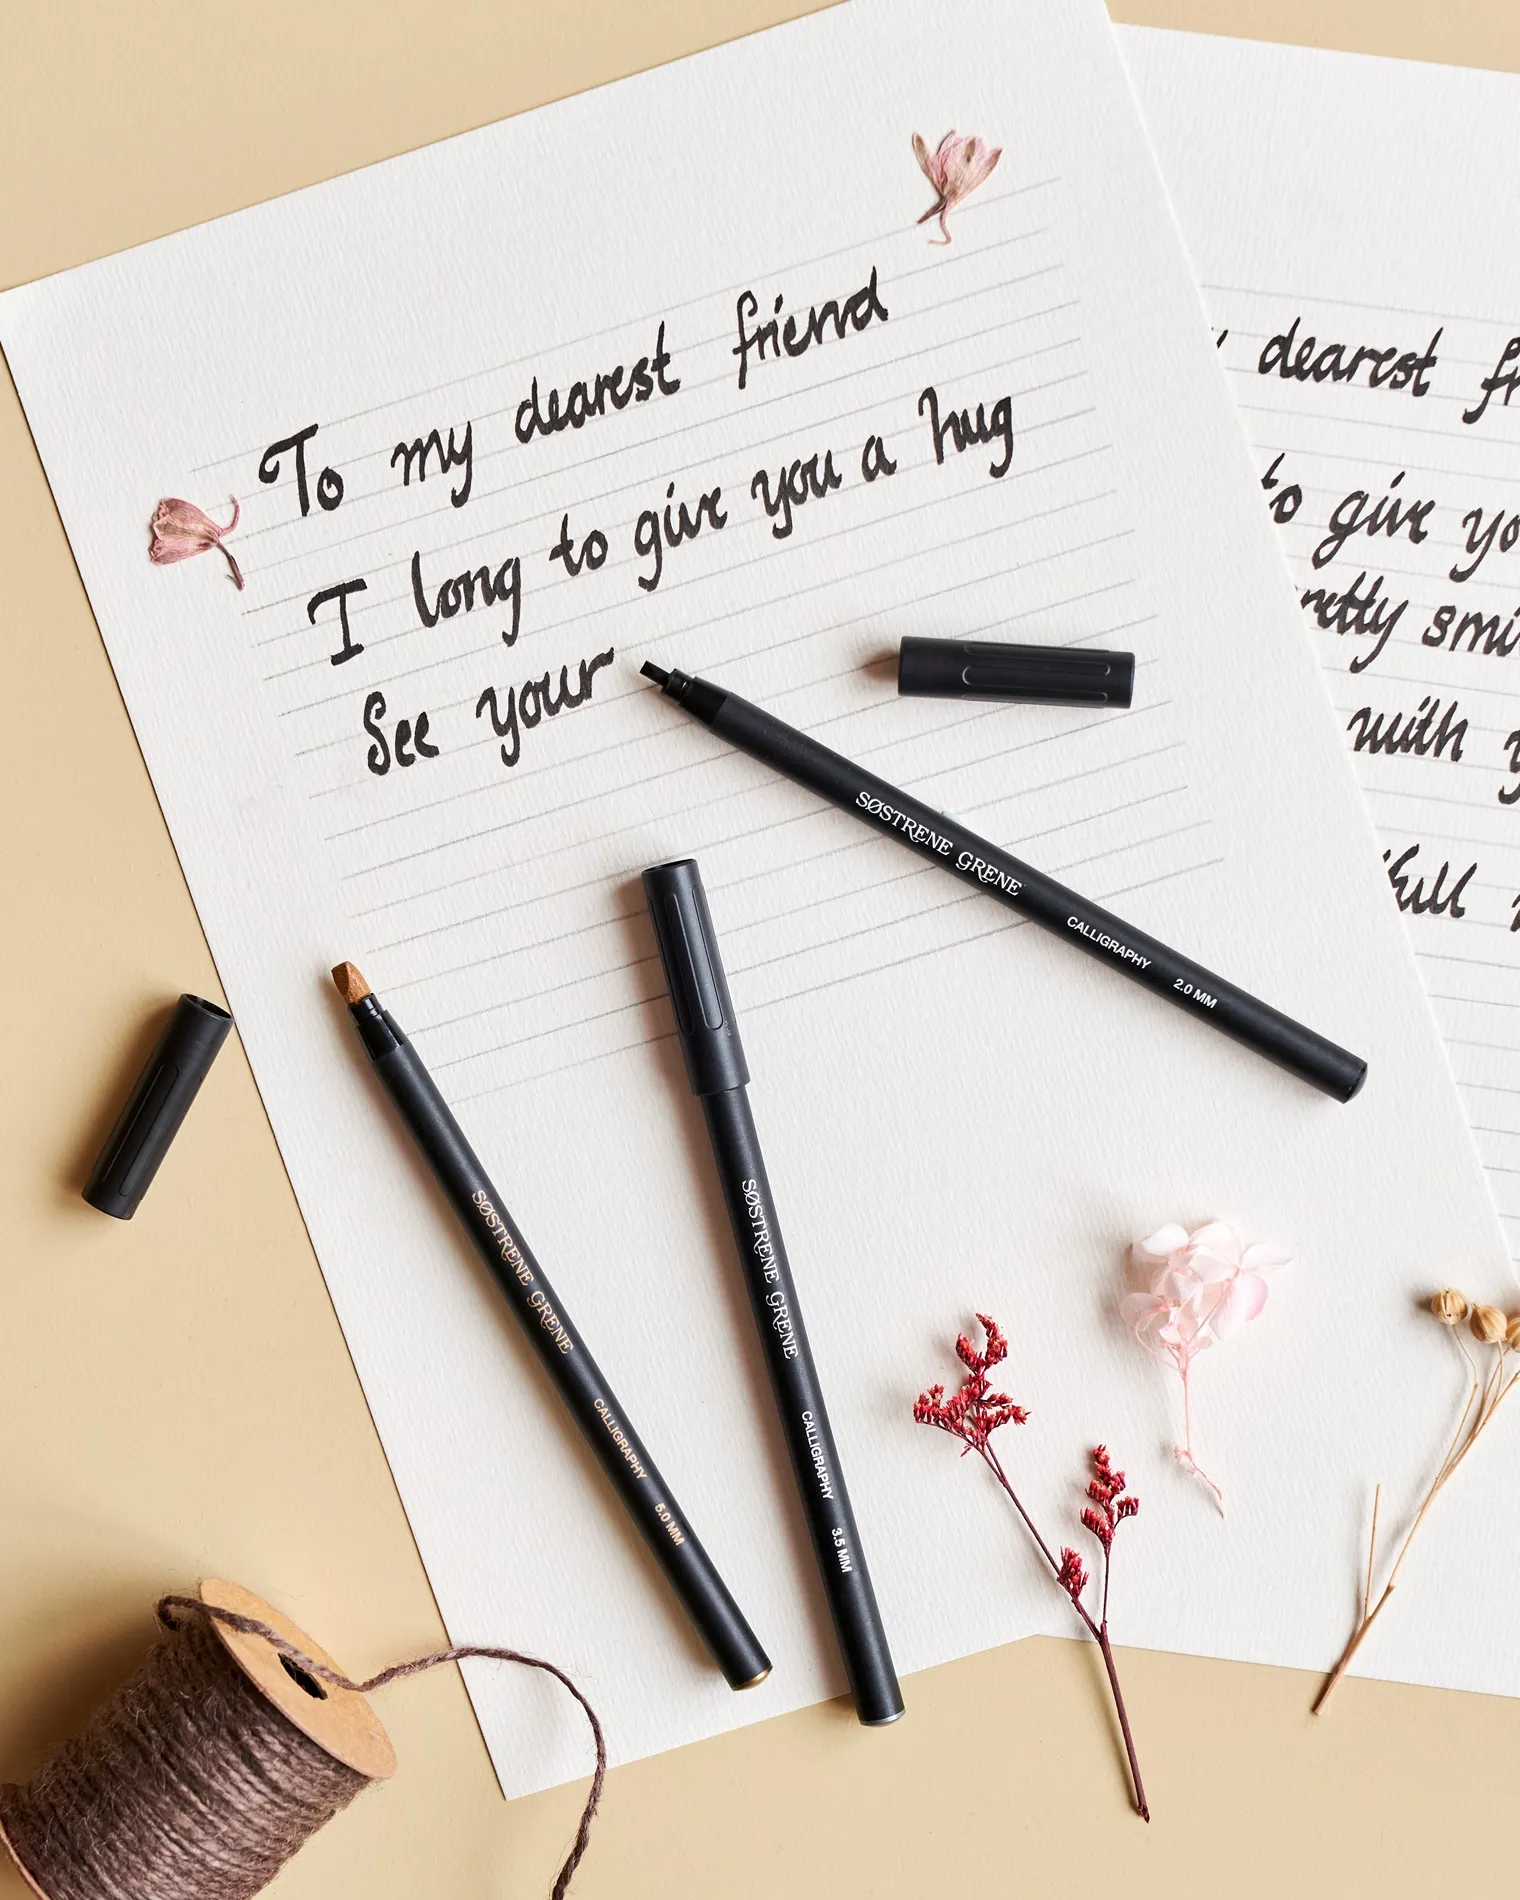 To my dearest friend
I long to give you a hug
See your
dearest
to give
pretty
with
full
SØSTRENE GRENE CALLIGRAPHY 2.0 MM
SØSTRENE GRENE CALLIGRAPHY 5.0 MM
SØSTRENE GRENE CALLIGRAPHY 3.5 MM